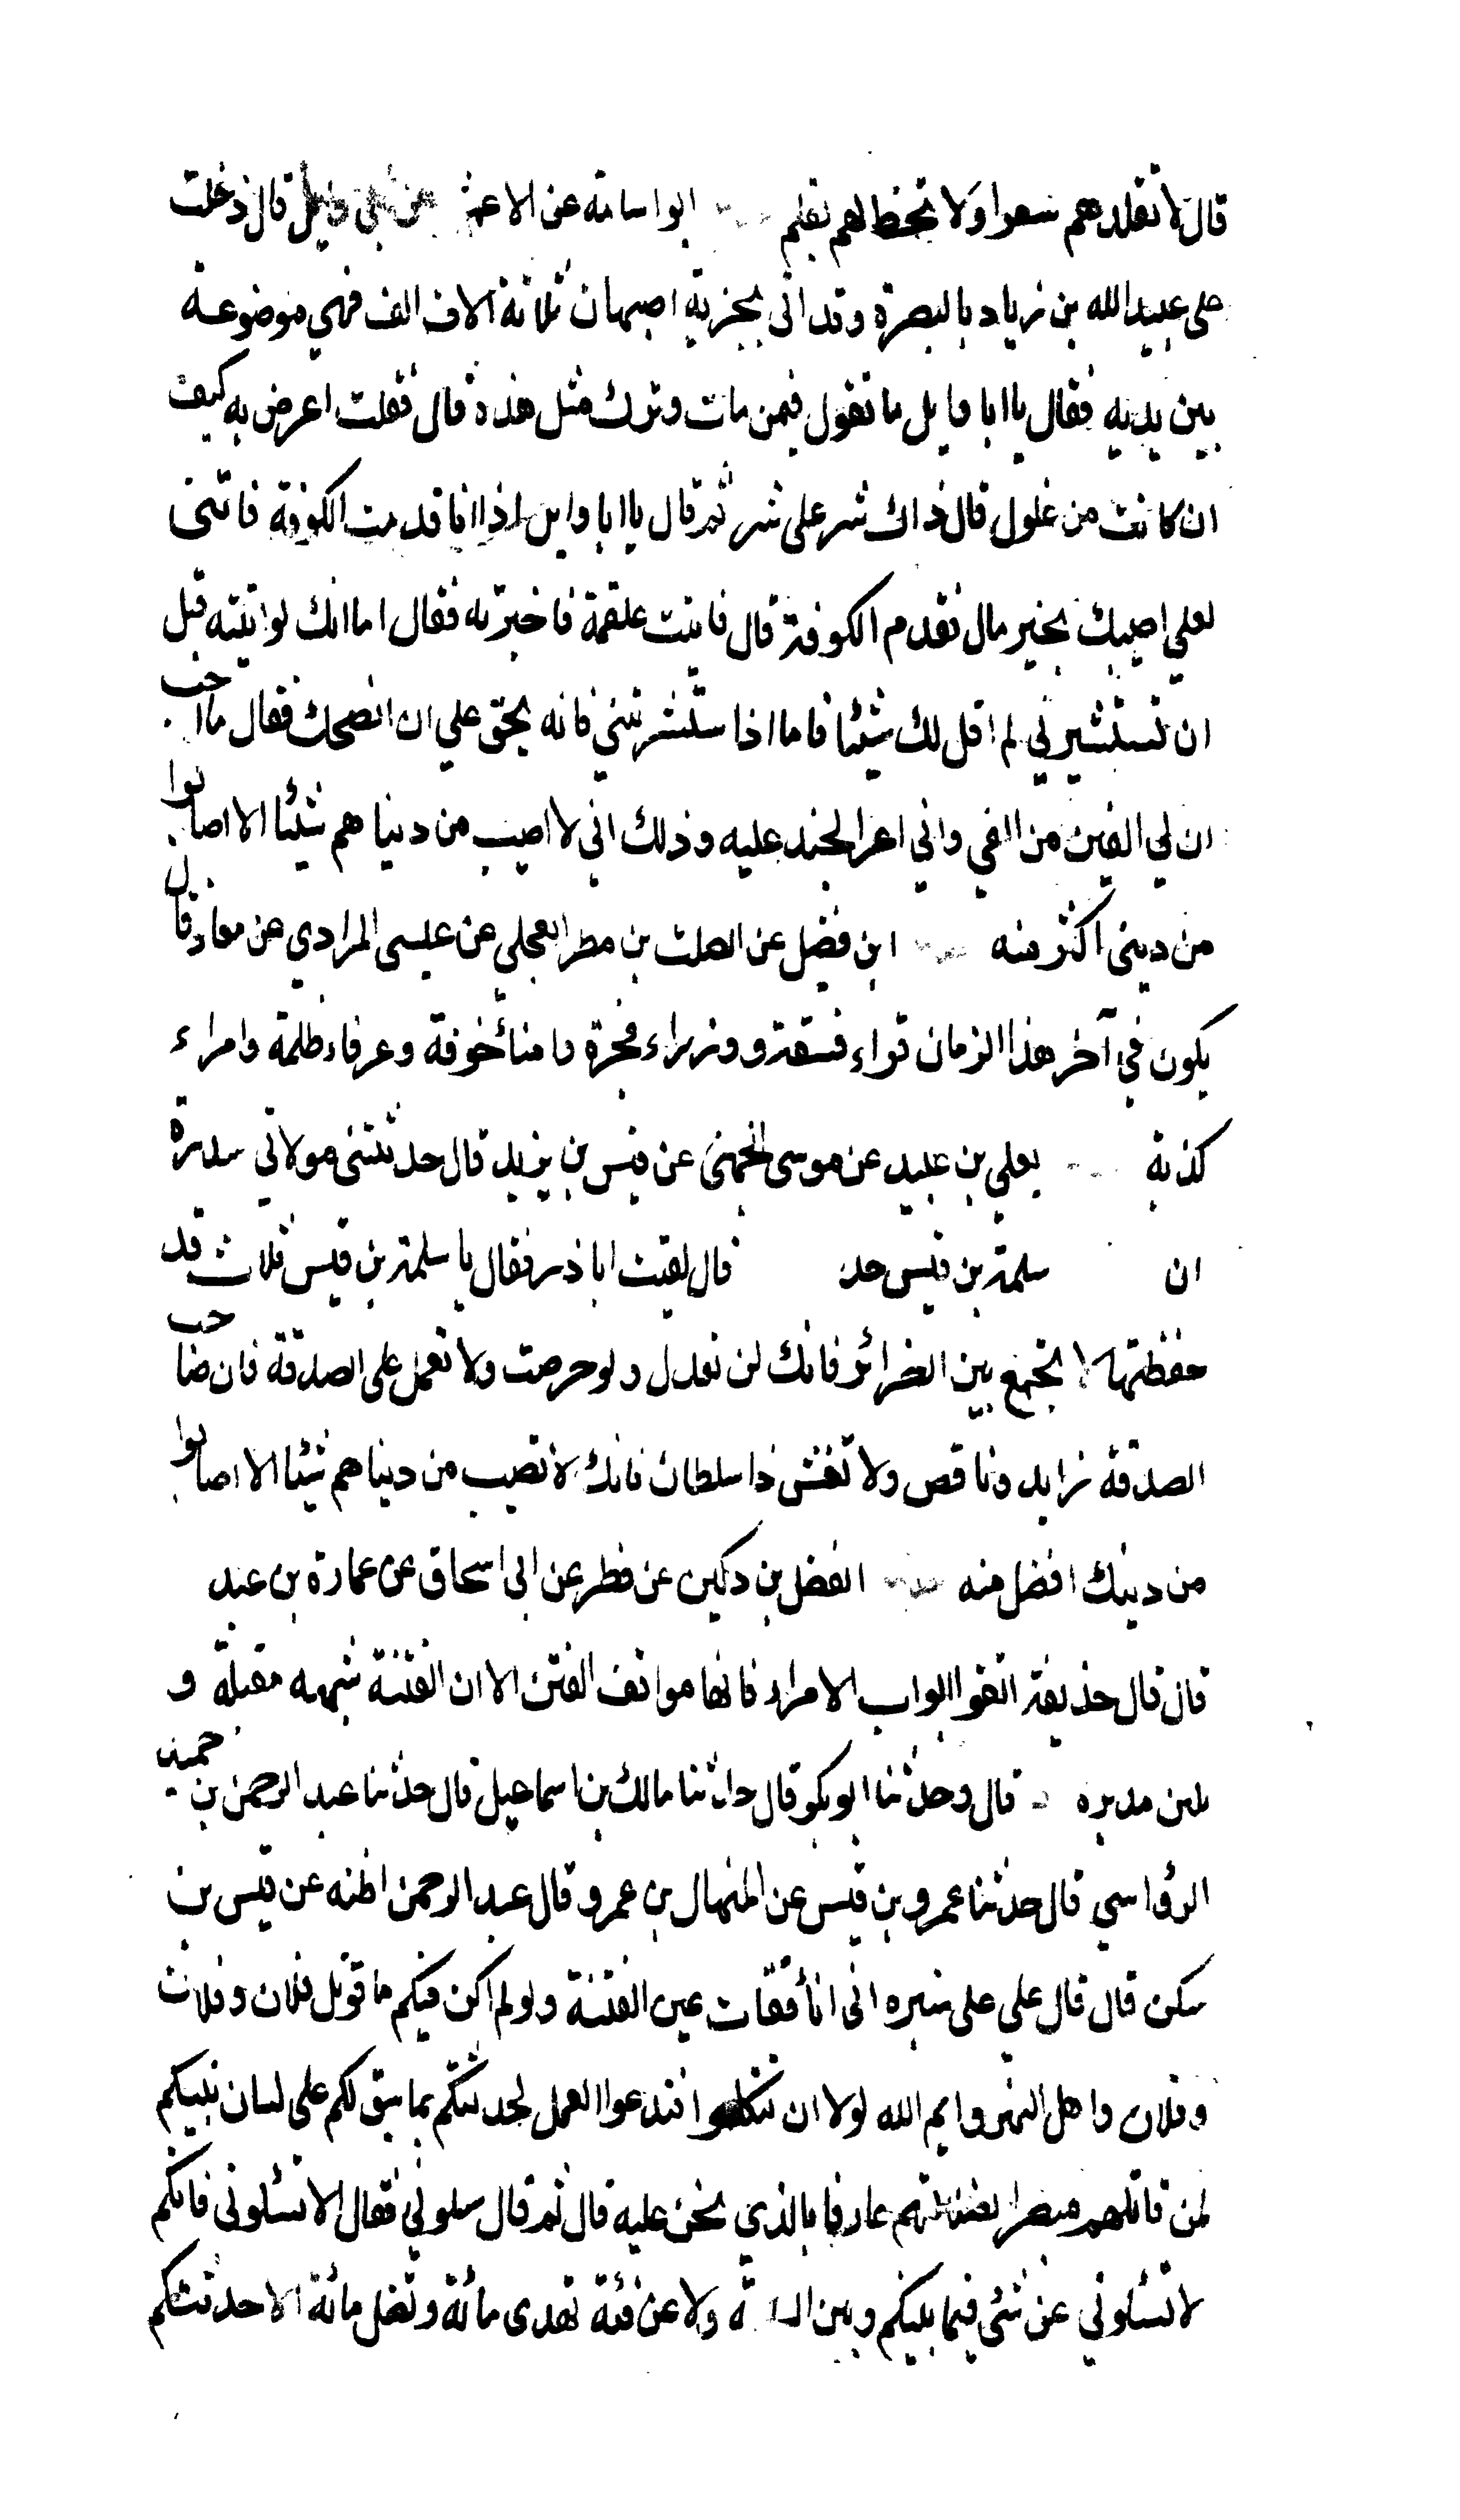 قال لا تقلدهم سعوا ولا تخط لهم بقلم ابو اسامة عن الاعمش عن ابي وايل قال دخلت
على عبيد الله بن زياد بالبصرة وقد اتى بجزية اصبهان ثلاثة الاف الف فهي موضوعة
بين يديه فقال يا ابا وايل ما تقول فيمن مات وترك مثل هذه قال فقلت اعرض به كيف
ان كانت من غلول قال ذاك شر على شر ثم قال يا ابا وايل اذا انا قدمت الكوفة فاتنى
لعلي اصيبك بخير مال نقدم الكوفة قال فاتيت علقمة فاخبرته فقال اما انك لو اتيته قبل
ان تستشيرني لم اقل لك شيئا فاما اذا ستشرتني فانه يحق علي ان انصحك فقال ما احب
ان لي الفين من الفي واني اعز الجند عليه وذلك اني لا اصيب من دنياهم شيئا الا اصابوا
من ديني اكثر منه ابن فضيل عن الصلت بن مطر العجلي عن عيسى المرادي عن معاذ قال
يكون في آخر هذا الزمان قراء فسقة ووزراء فجرة وامناء خونة وعرفاء ظلمة وامراء
كذبة يعلي بن عبيد عن موسى الجهني عن قيس بن يزيد قال حدثتنى مولاتي سدرة
ان سلمة بن قيس حدث قال لقيت ابا ذر فقال يا سلمة بن قيس ثلاث قد
حفظتها لا تجمع بين الضرائر فانك لن تعدل ولو حرصت ولا تعمل على الصدقة فان صاحب
الصدقة زايد وناقص ولا تغش ذا سلطان فانك لا تصيب من دنياهم شيئا الا اصابوا
من دينك افضل منه الفضل بن دكين عن فطر عن ابى اسحاق عن عمارة بن عبد
قال قال حذيفة اتقوا ابواب الامراء فانها مواقف الفتن الا ان الفتنة شبهه مقبلة و
تبين مدبره قال وحدثنا ابو بكر قال حدثنا مالك بن اسماعيل قال حدثنا عبد الرحمن بن حميد
الرؤاسي قال حدثنا عمرو بن قيس عن المنهال بن عمرو قال عبد الرحمن اظنه عن قيس بن
سكن قال قال علي على منبره انى انا فقأت عين الفتنة ولو لم اكن فيكم ما قوتل فلان وفلان
وفلان واهل النهر وايم الله لولا ان تتكلوا فتدعوا العمل لحدثتكم بما سبق لكم على لسان نبيكم
لمن قاتلهم مبصرا لضلالتهم عارفا بالذي نحن عليه قال ثم قال سلوني فقال الا تسئلونى فانكم
لا تسئلوني عن شئ فيما بينكم وبين الساعة ولا عن فئة تهدى مائة وتضل مائة الا حدثتكم